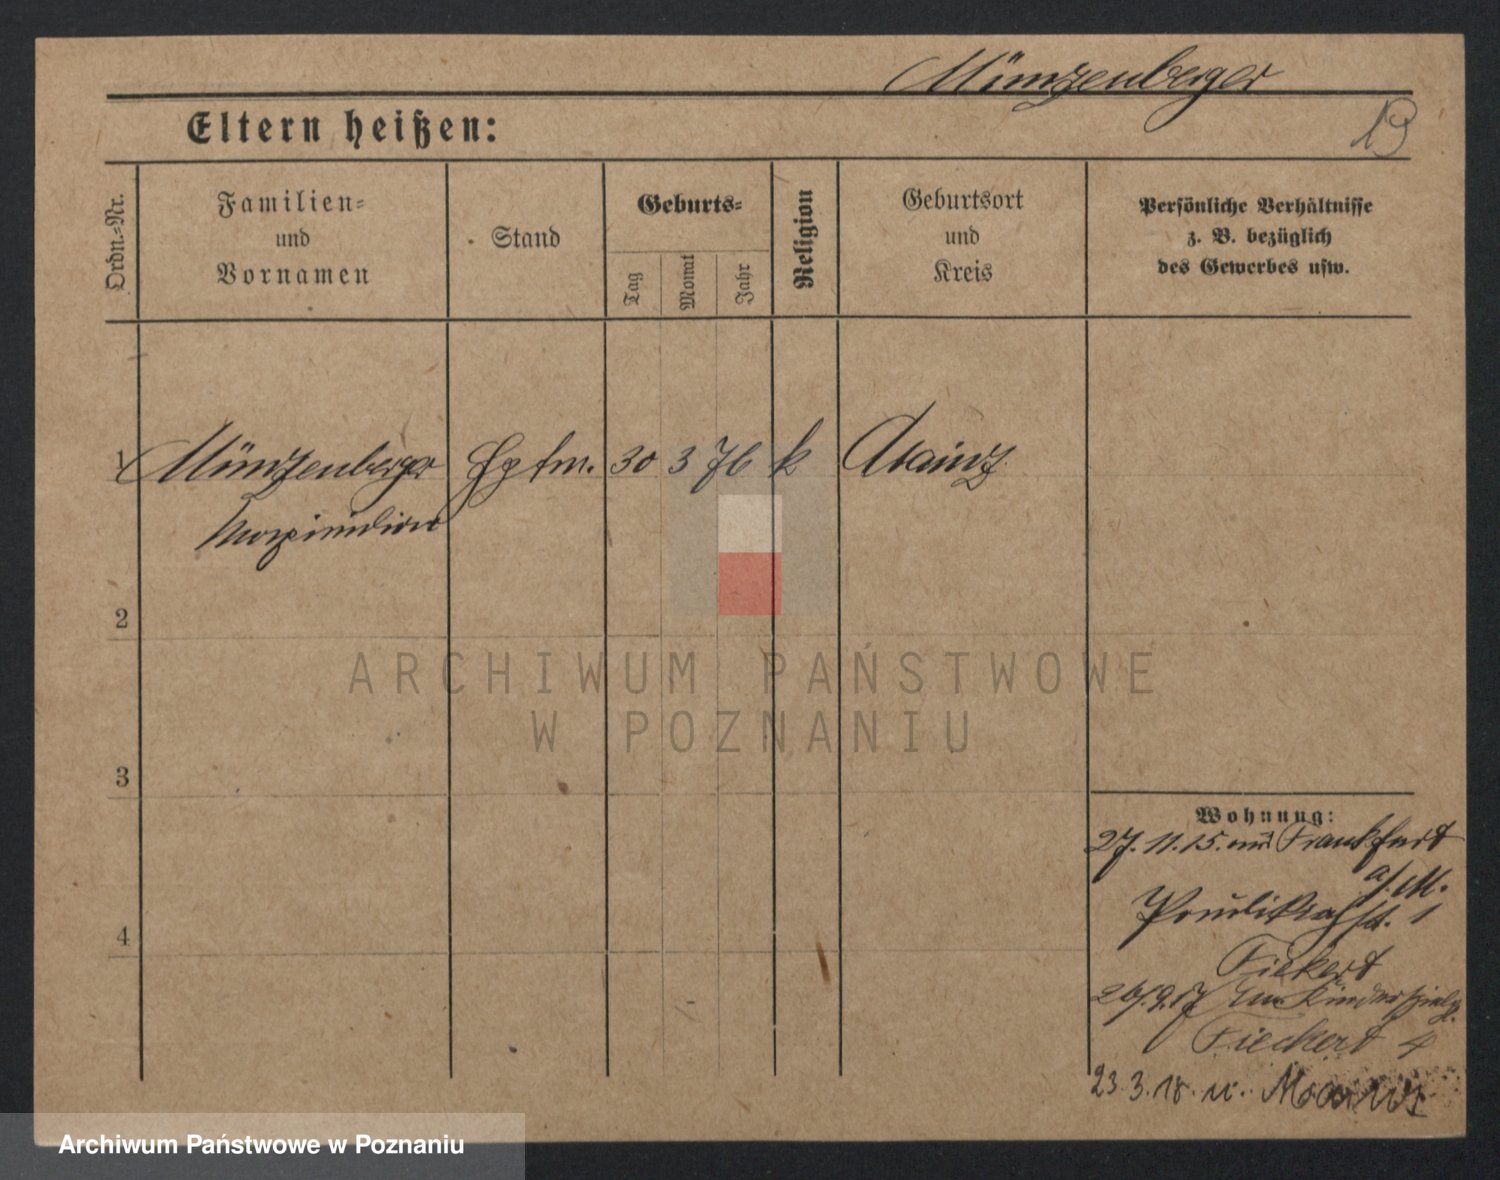 Münzenberger
19
Eltern heißen:
Ordn.-Nr.
Familien-
und
Vornamen
Stand
Geburts-
Tag
Monat
Jahr
Religion
Geburtsort
und
Kreis
Persönliche Verhältnisse
z. B. bezüglich
des Gewerbes usw.
1 Münzenberger Hptm. 30 3 76 k Mainz
Maximilian
2
3
4
Wohnung:
27.11.15. Frankfurt
a/M.
1
Fiekert
26/9.17
Fieckert 4
23.3.18. n. Mainz
ARCHIWUM PAŃSTWOWE
W POZNANIU
Archiwum Państwowe w Poznaniu